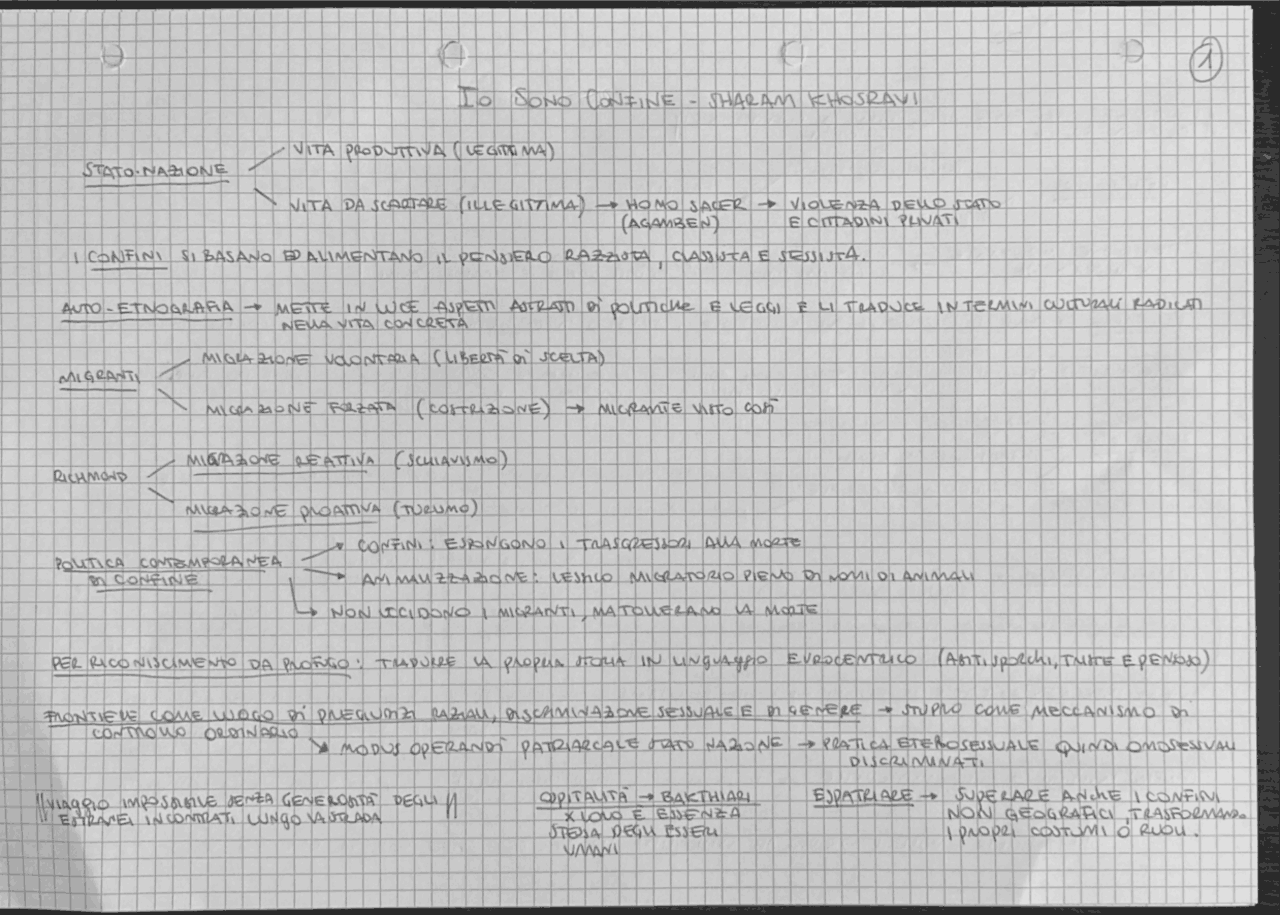 1
IO SONO CONFINE - SHARAM KHOSRAVI
STATO-NAZIONE
VITA PRODUTTIVA (LEGITTIMA)
VITA DA SCARTARE (ILLEGITTIMA) → HOMO SACER → VIOLENZA DELLO STATO
(AGAMBEN) E CITTADINI PRIVATI
I CONFINI SI BASANO ED ALIMENTANO IL PENSIERO RAZZISTA, CLASSISTA E SESSISTA.
AUTO-ETNOGRAFIA → METTE IN LUCE ASPETTI ASTRATTI DI POLITICHE E LEGGI E LI TRADUCE IN TERMINI CULTURALI RADICATI
NELLA VITA CONCRETA
MIGRANTI
MIGRAZIONE VOLONTARIA (LIBERTÀ DI SCELTA)
MIGRAZIONE FORZATA (COSTRIZIONE) → MIGRANTE VISTO COSÌ
RICHMOND
MIGRAZIONE REATTIVA (SCHIAVISMO)
MIGRAZIONE PROATTIVA (TURISMO)
POLITICA CONTEMPORANEA
DI CONFINE
→ CONFINI: ESPONGONO I TRASGRESSORI ALLA MORTE
→ ANIMALIZZAZIONE: LESSICO MIGRATORIO PIENO DI NOMI DI ANIMALI
→ NON UCCIDONO I MIGRANTI, MA TOLLERANO LA MORTE
PER RICONISCIMENTO DA PROFUGO: TRADURRE LA PROPRIA STORIA IN LINGUAGGIO EUROCENTRICO (ABITI SPORCHI, TRISTE E PENOSO)
FRONTIERE COME LUOGO DI PREGIUDIZI RAZZIALI, DISCRIMINAZIONE SESSUALE E DI GENERE → STUPRO COME MECCANISMO DI
CONTROLLO ORDINARIO
↘ MODUS OPERANDI PATRIARCALE STATO NAZIONE → PRATICA ETEROSESSUALE QUINDI OMOSESSUALI
DISCRIMINATI.
"VIAGGIO IMPOSSIBILE SENZA GENEROSITÀ DEGLI
ESTRANEI INCONTRATI LUNGO LA STRADA"
OSPITALITÀ → BAKTHIARI
X LORO È ESSENZA
STESSA DEGLI ESSERI
UMANI
ESPATRIARE → SUPERARE ANCHE I CONFINI
NON GEOGRAFICI, TRASFORMANDO
I PROPRI COSTUMI O RUOLI.